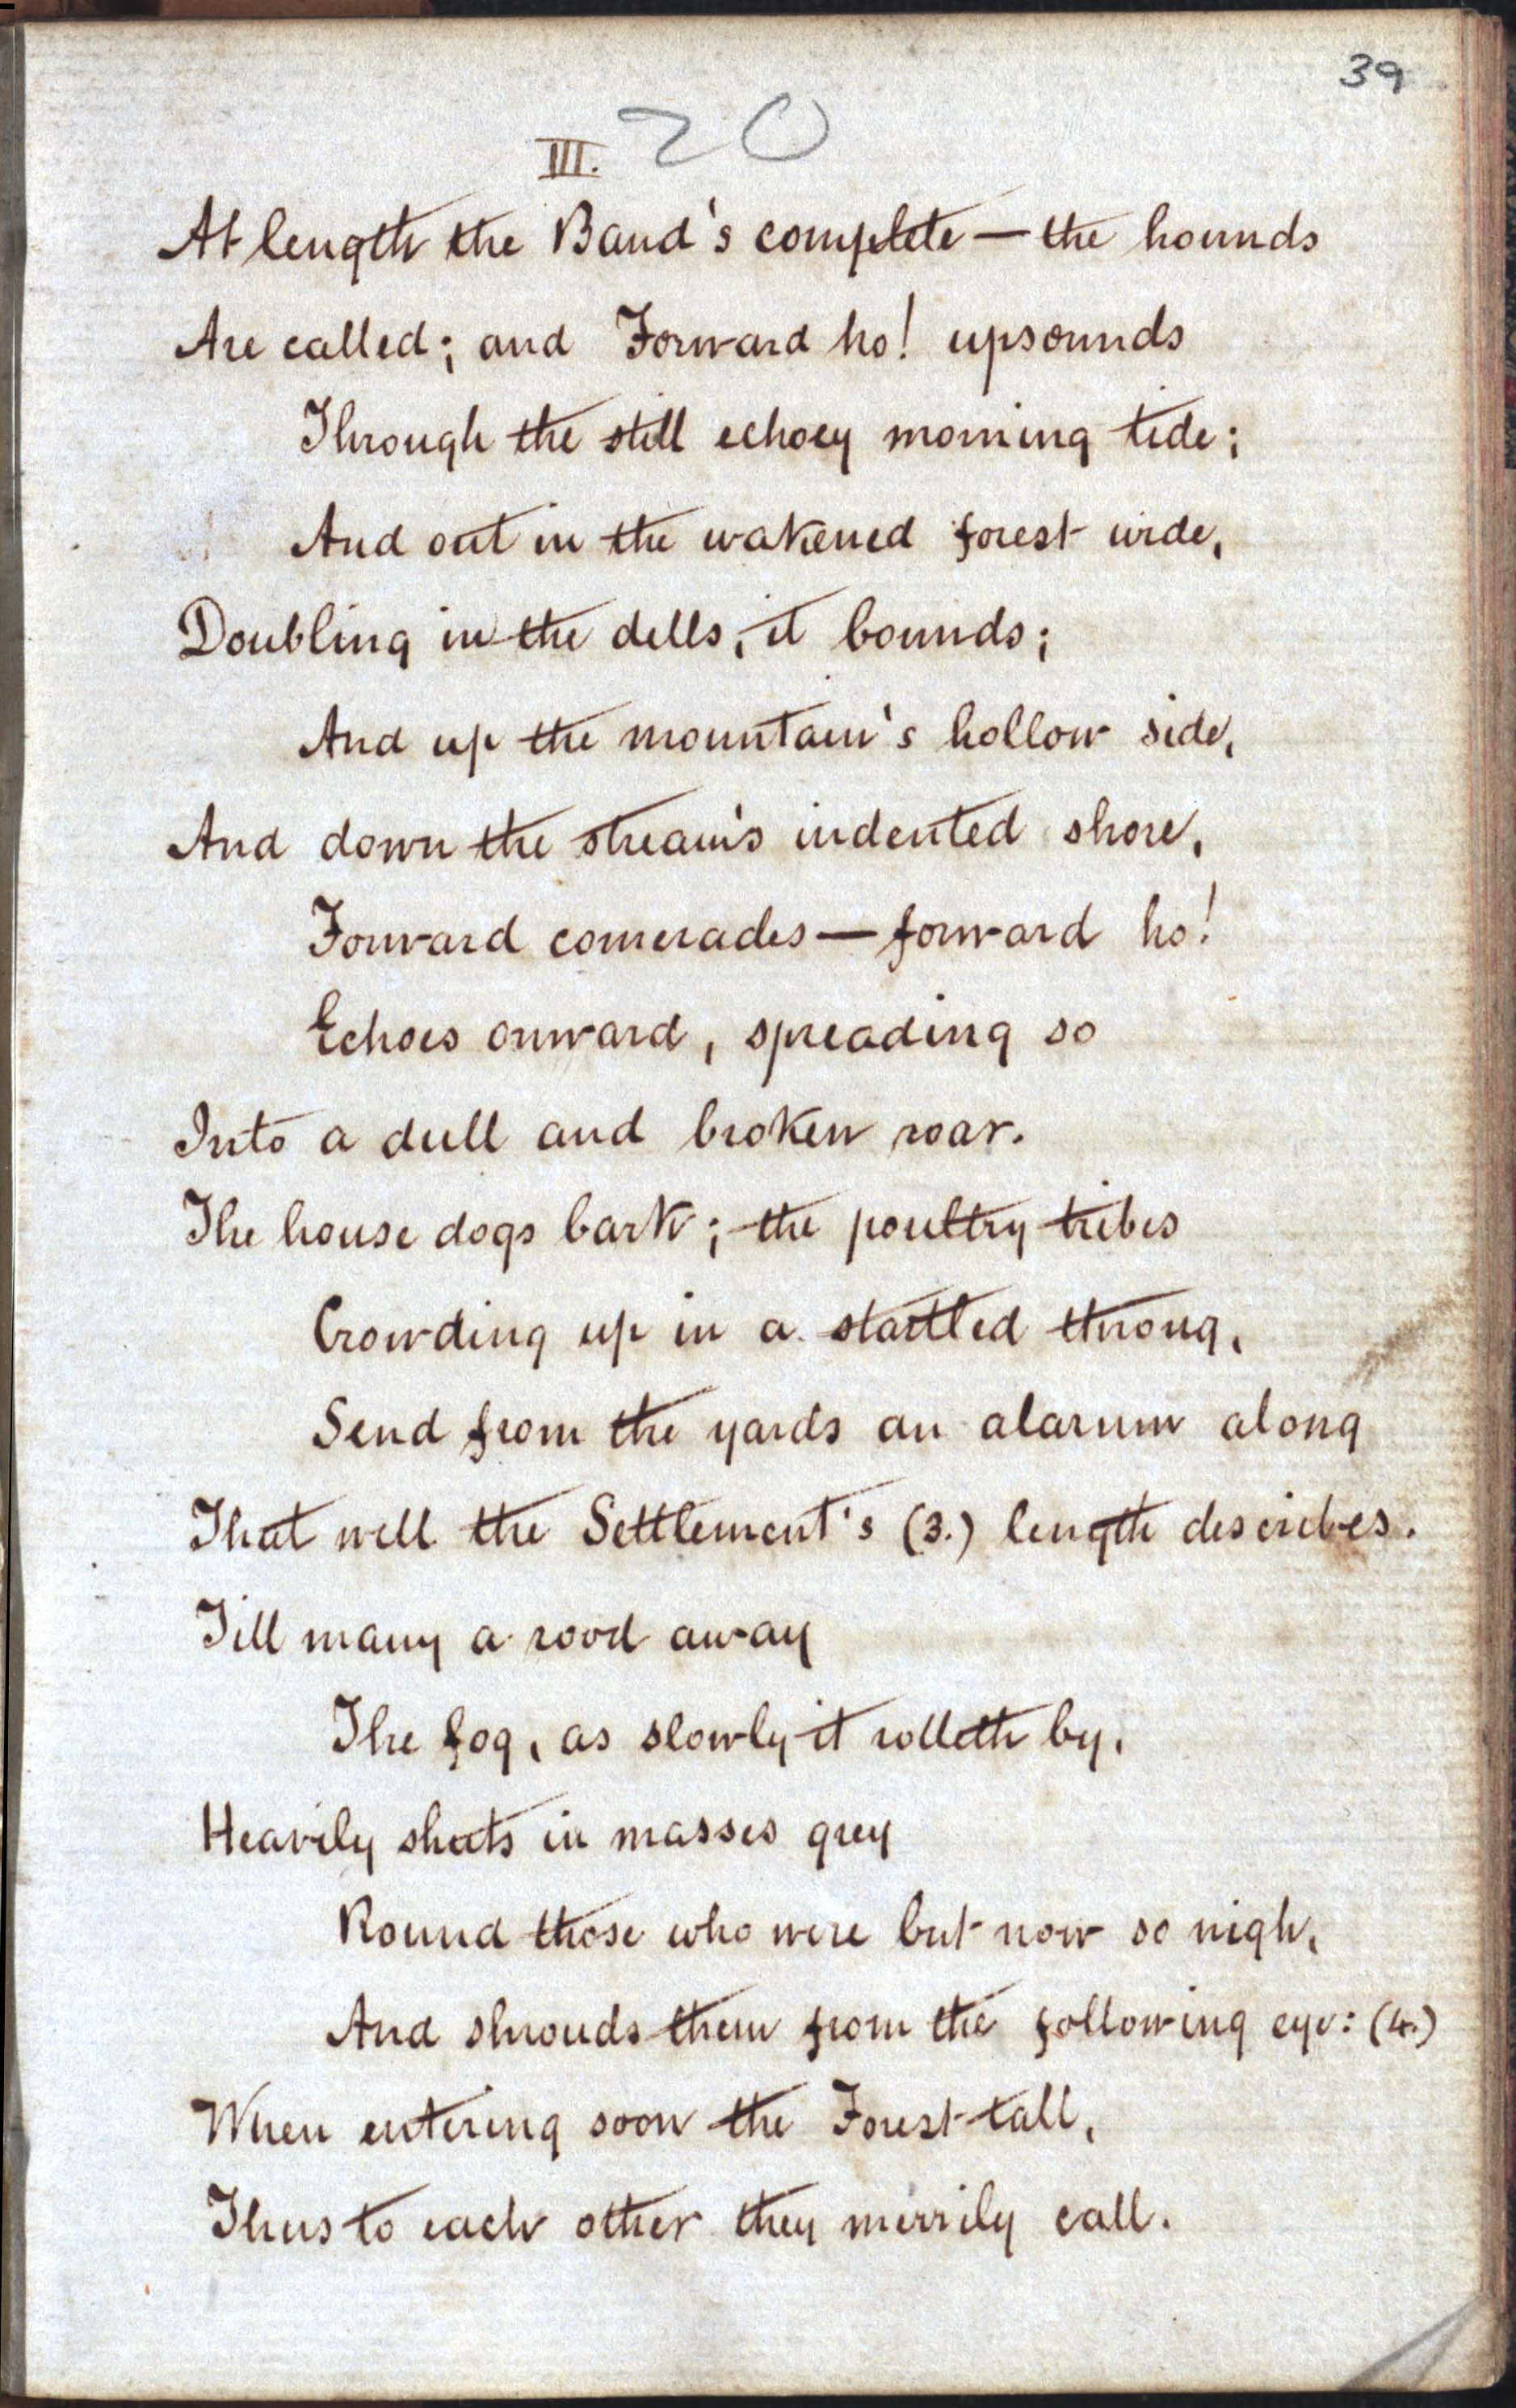 39
III. 20
At length the Band's complete — the hounds
Are called; and Forward ho! upsounds
Through the still echoey morning tide;
And out in the wakened forest wide,
Doubling in the dells, it bounds;
And up the mountain's hollow side,
And down the stream's indented shore,
Forward comerades — forward ho!
Echoes onward, spreading so
Into a dull and broken roar.
The house dogs bark; the poultry tribes
Crowding up in a startled throng,
Send from the yards an alarum along
That well the Settlement's (3.) length describes.
Till many a rood away
The fog, as slowly it rolleth by,
Heavily shuts in masses grey
Round those who were but now so nigh,
And shrouds them from the following eye: (4.)
When entering soon the Forest tall,
Thus to each other they merrily call.